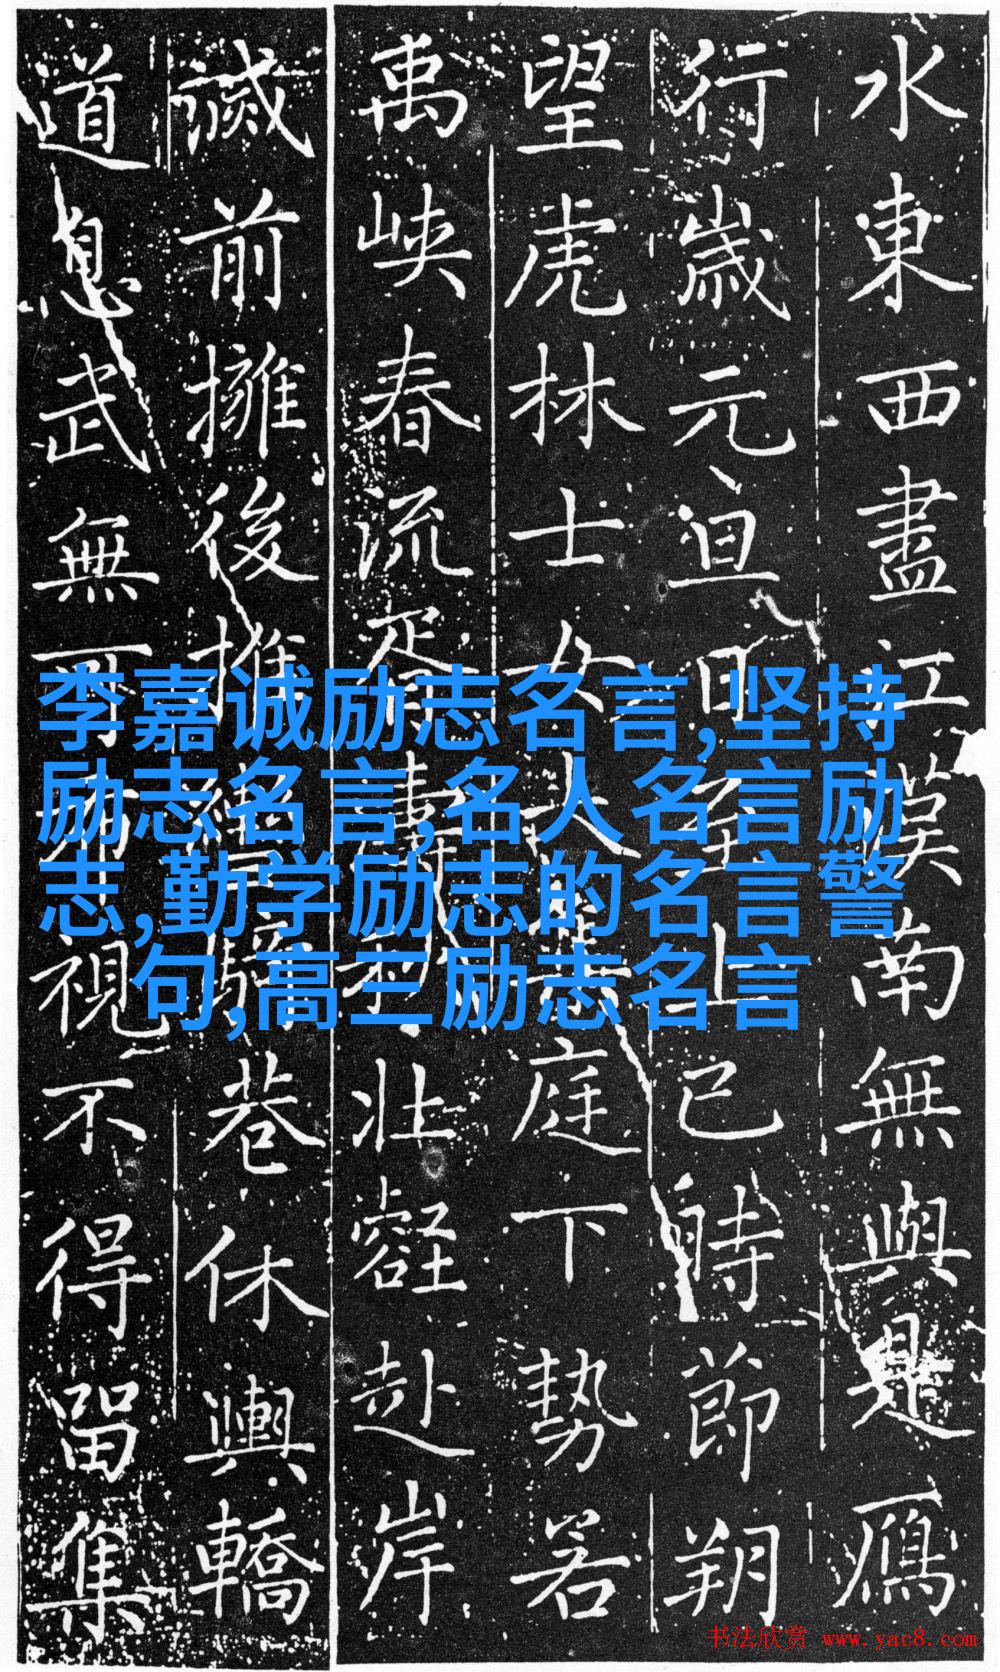 水東西盡江漢南無與是鴈
行歲元旦日至上巳時節朔
望虎林士女大集庭下勢若
禹峽春流胥濤秋壯壑赴岸
前擁後推騎巷休輿轎
道息武無可視不得留隻
李嘉诚励志名言,坚持
励志名言,名人名言励
志,勤学励志的名言警
句,高三励志名言
书法欣赏 www.yac8.com